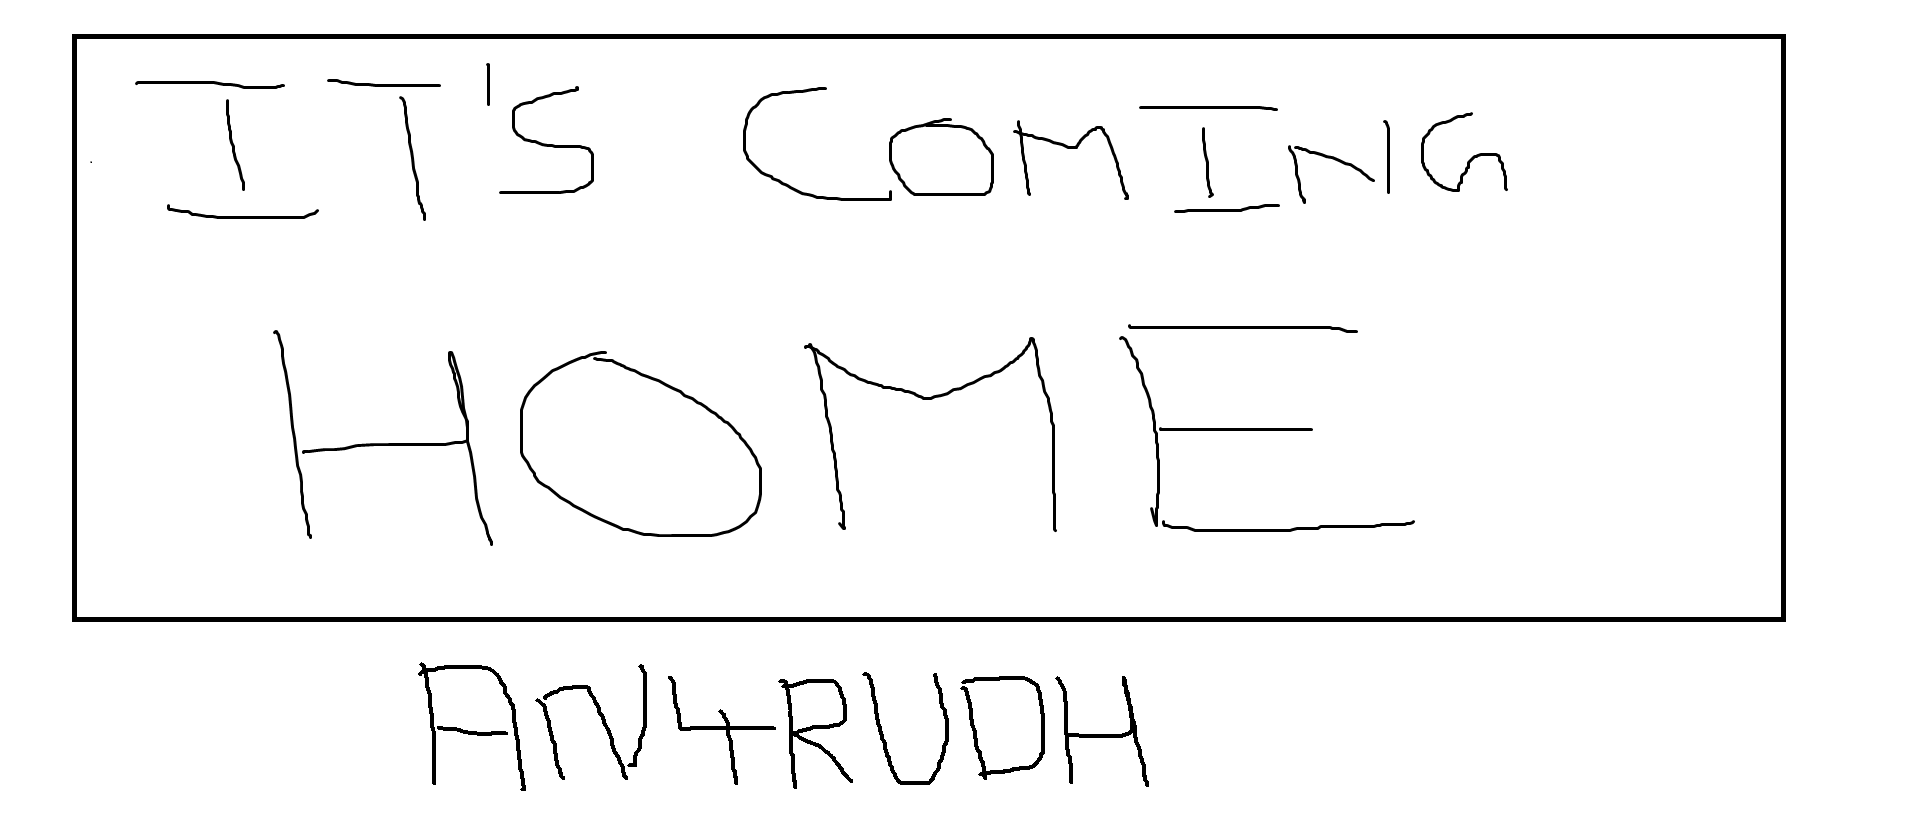 IT'S COMING
HOME
AN4RUDH